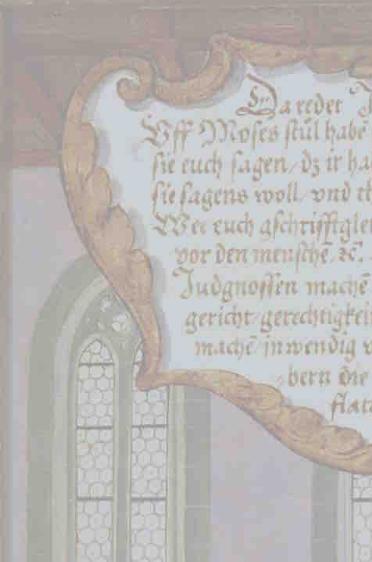 Da redet
Vff Moses stůl habē
sie euch sagen/ dz ir ha
sie sagens woll/ vnd
Wee euch gschrifftgle
vor den menschē, ꝛc.
Judgnossen machē
gericht/ gerechtigkei
machē/ inwendig v
bern die
flat